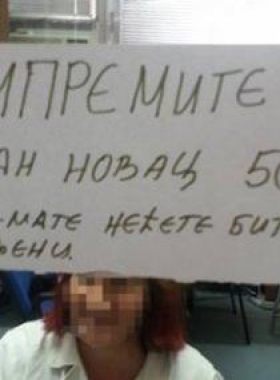 ИПРЕМИТЕ
АН НОВАЦ 50
МАТЕ НЕЋЕТЕ БИТ
ЕНИ.